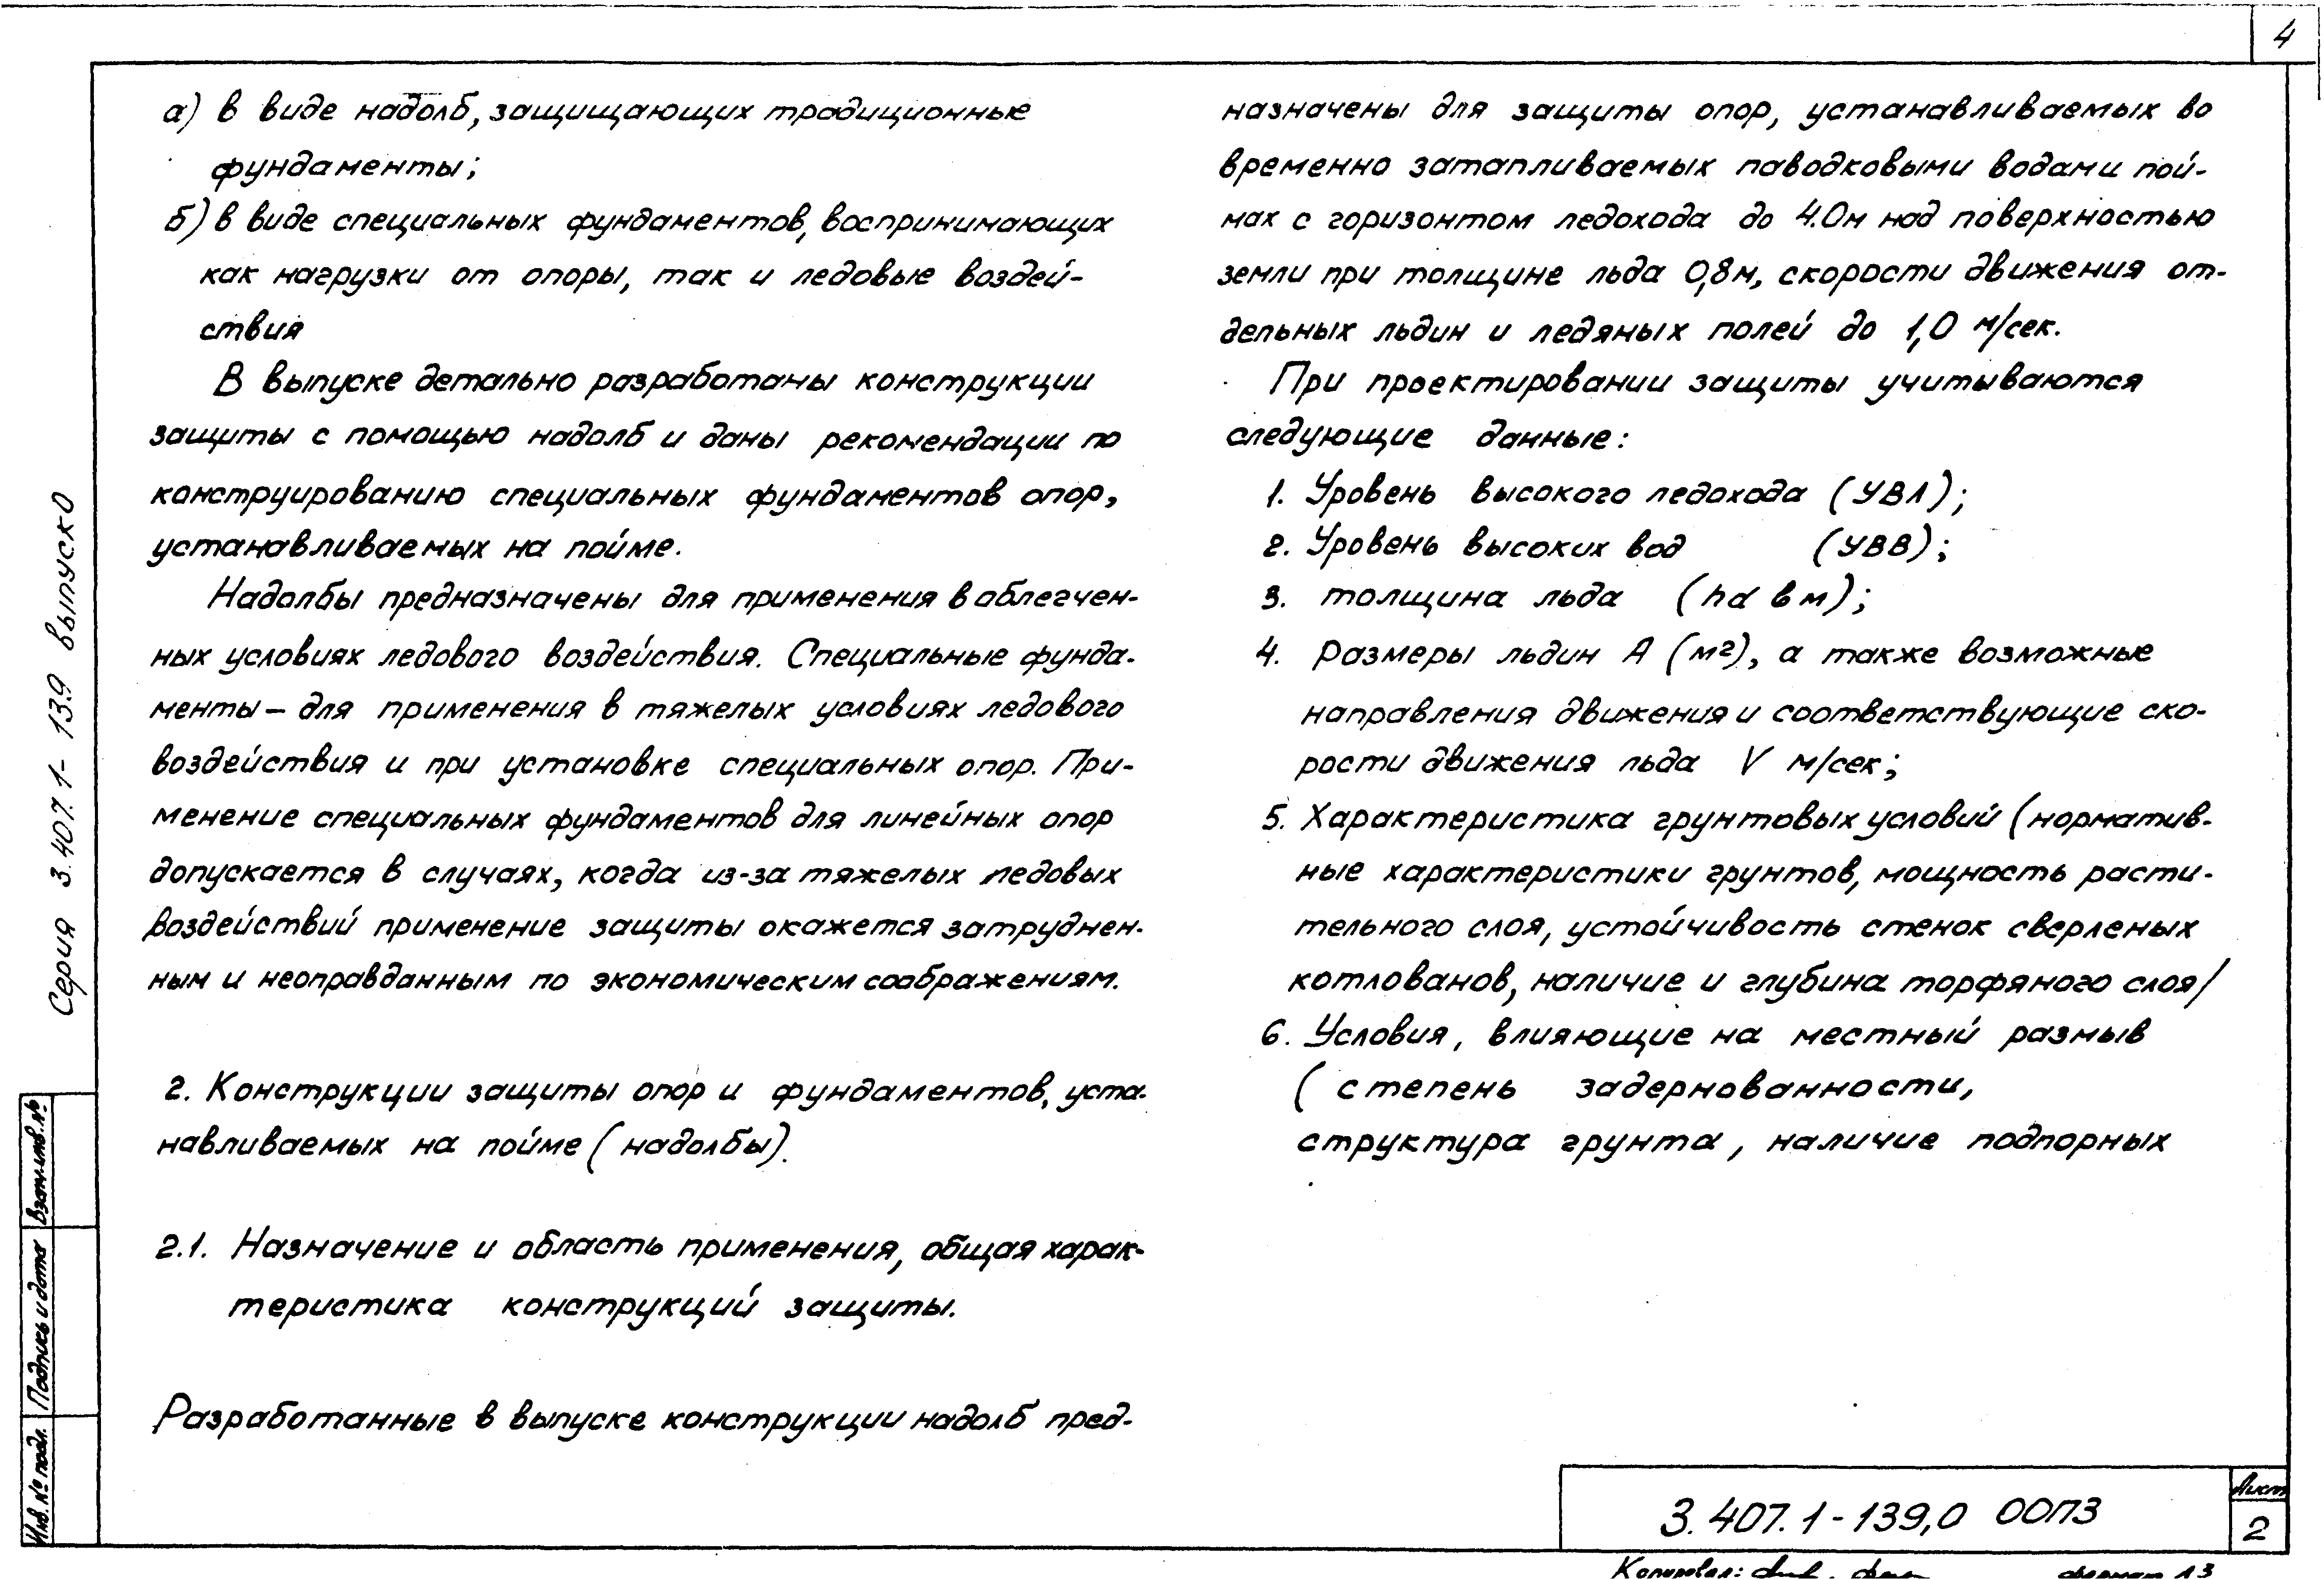 4
а) в виде надолб, защищающих традиционные
фундаменты;
б) в виде специальных фундаментов, воспринимающих
как нагрузки от опоры, так и ледовые воздей-
ствия
В выпуске детально разработаны конструкции
защиты с помощью надолб и даны рекомендации по
конструированию специальных фундаментов опор,
устанавливаемых на пойме.
Надолбы предназначены для применения в облегчен-
ных условиях ледового воздействия. Специальные фунда-
менты – для применения в тяжелых условиях ледового
воздействия и при установке специальных опор. При-
менение специальных фундаментов для линейных опор
допускается в случаях, когда из-за тяжелых ледовых
воздействий применение защиты окажется затруднен-
ным и неоправданным по экономическим соображениям.
2. Конструкции защиты опор и фундаментов, уста-
навливаемых на пойме (надолбы).
2.1. Назначение и область применения, общая харак-
теристика конструкций защиты.
Разработанные в выпуске конструкции надолб пред-
назначены для защиты опор, устанавливаемых во
временно затапливаемых паводковыми водами пой-
мах с горизонтом ледохода до 4.0м над поверхностью
земли при толщине льда 0,8м, скорости движения от-
дельных льдин и ледяных полей до 1,0 м/сек.
При проектировании защиты учитываются
следующие данные:
1. Уровень высокого ледохода (УВЛ);
2. Уровень высоких вод (УВВ);
3. толщина льда (hd в м);
4. Размеры льдин А (м2), а также возможные
направления движения и соответствующие ско-
рости движения льда V м/сек;
5. Характеристика грунтовых условий (норматив-
ные характеристики грунтов, мощность расти-
тельного слоя, устойчивость стенок сверленых
котлованов, наличие и глубина торфяного слоя/
6. Условия, влияющие на местный размыв
(степень задернованности,
структура грунта, наличие подпорных
Серия 3.407.1-13.9 выпуск 0
Взам.инв.№
Подпись и дата
Инв.№ подл.
3.407.1-139,0 00ПЗ
Лист
2
Копировал:
формат А3